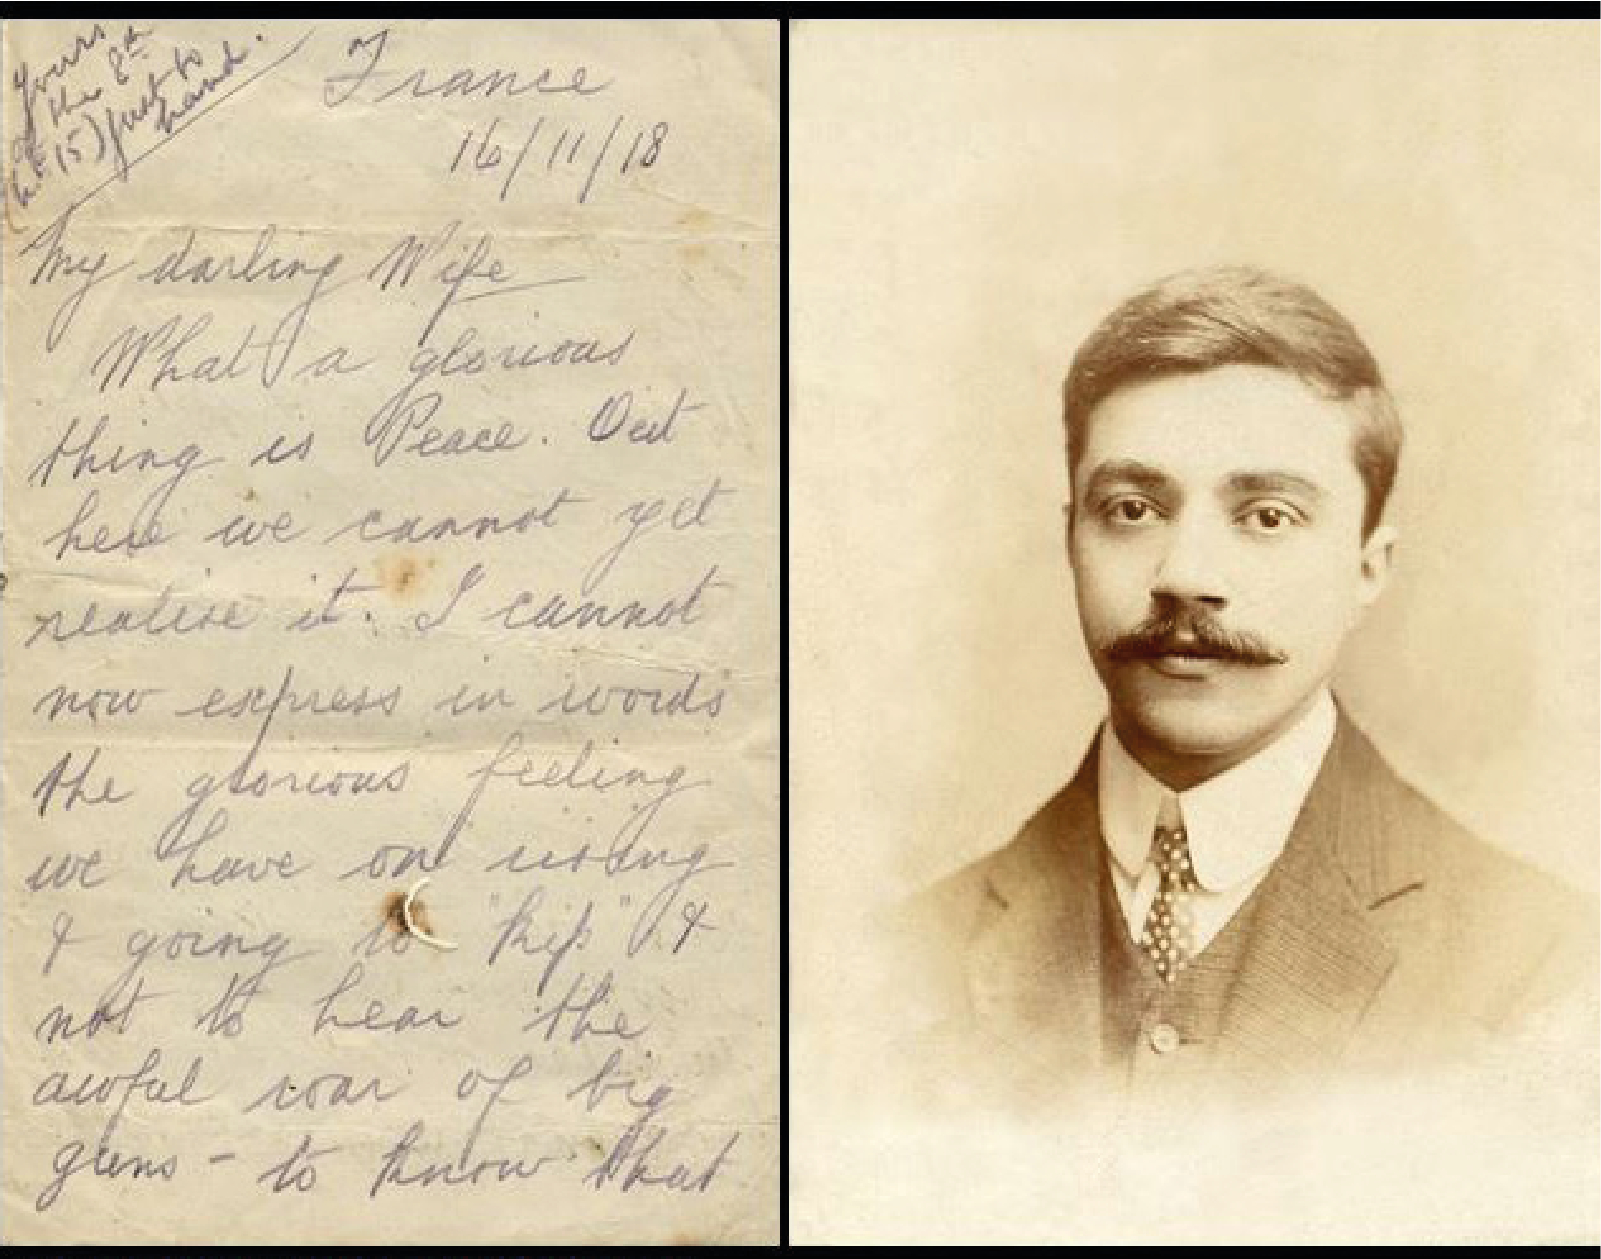 Yours
of the 8th
(Lt 15) just to
hand.
France
16/11/18
My darling Wife
What a glorious
thing is Peace. Out
here we cannot yet
realise it. I cannot
now express in words
the glorious feeling
we have on rising
& going to "kip" &
not to hear the
awful roar of big
guns - to know that